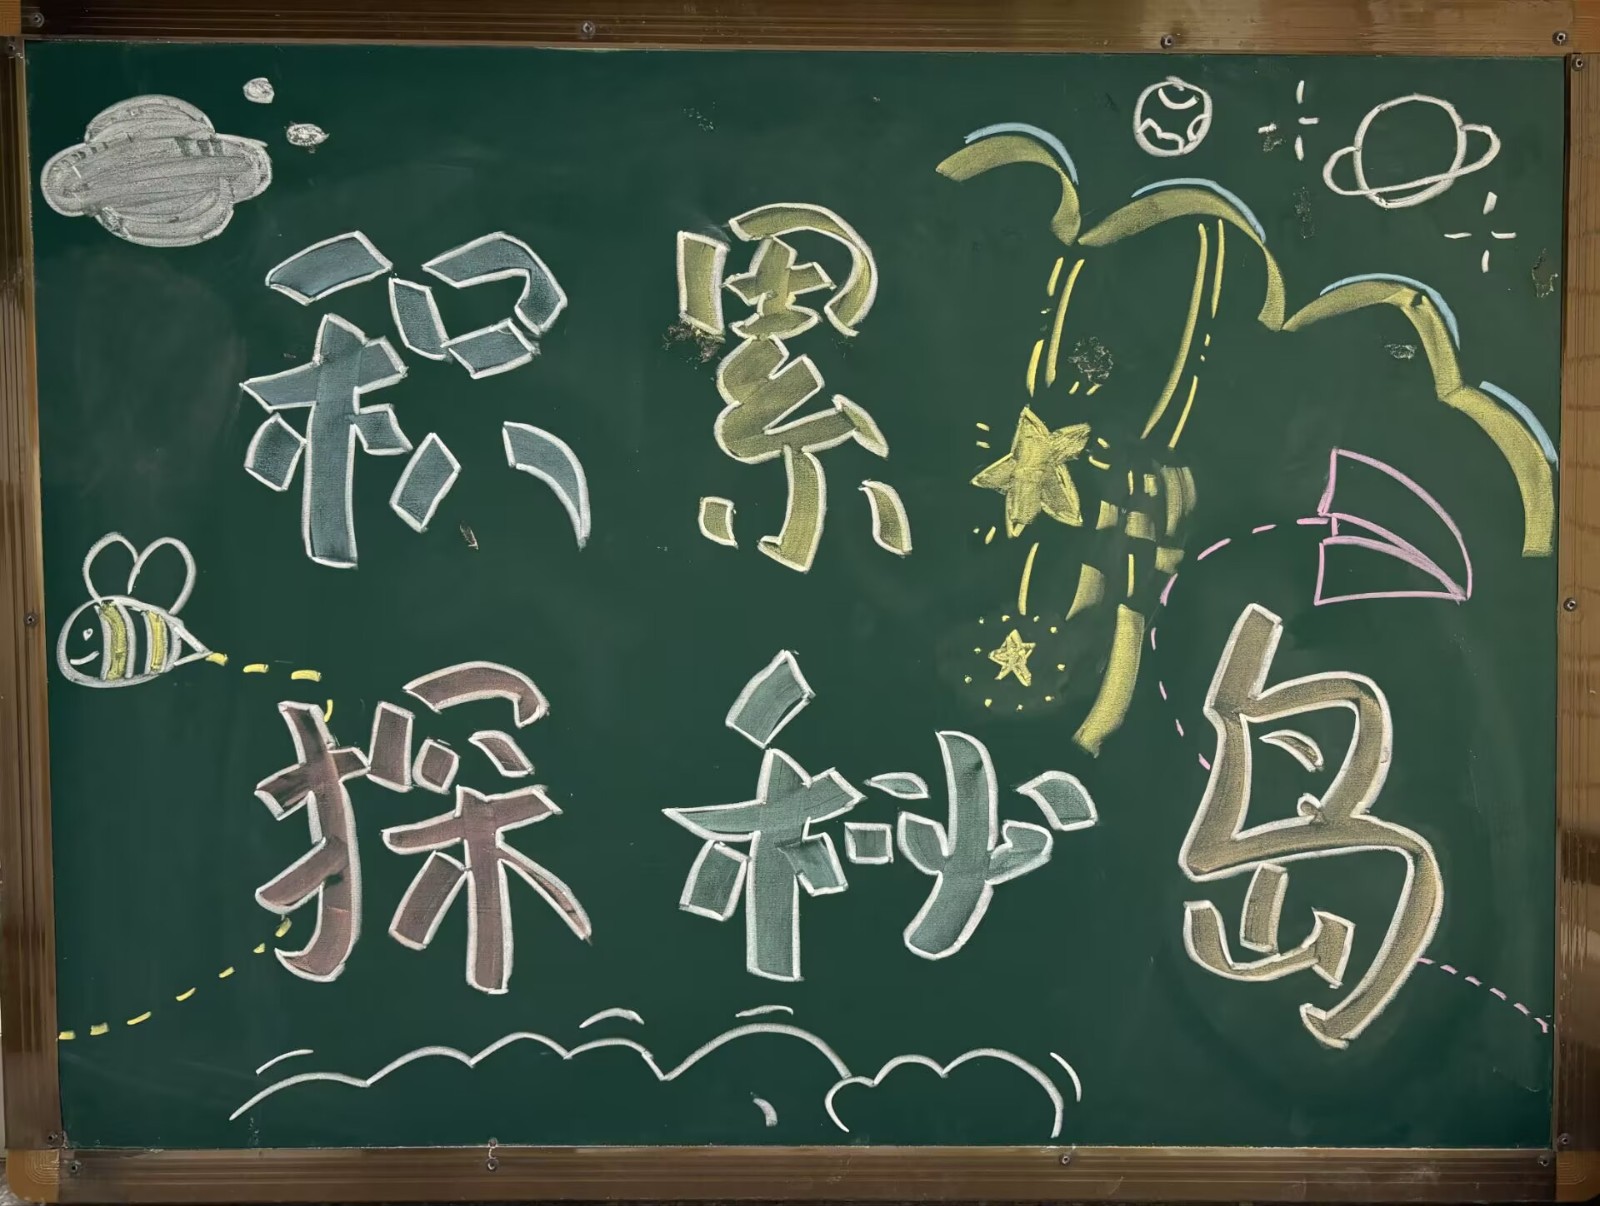 积累
探秘岛